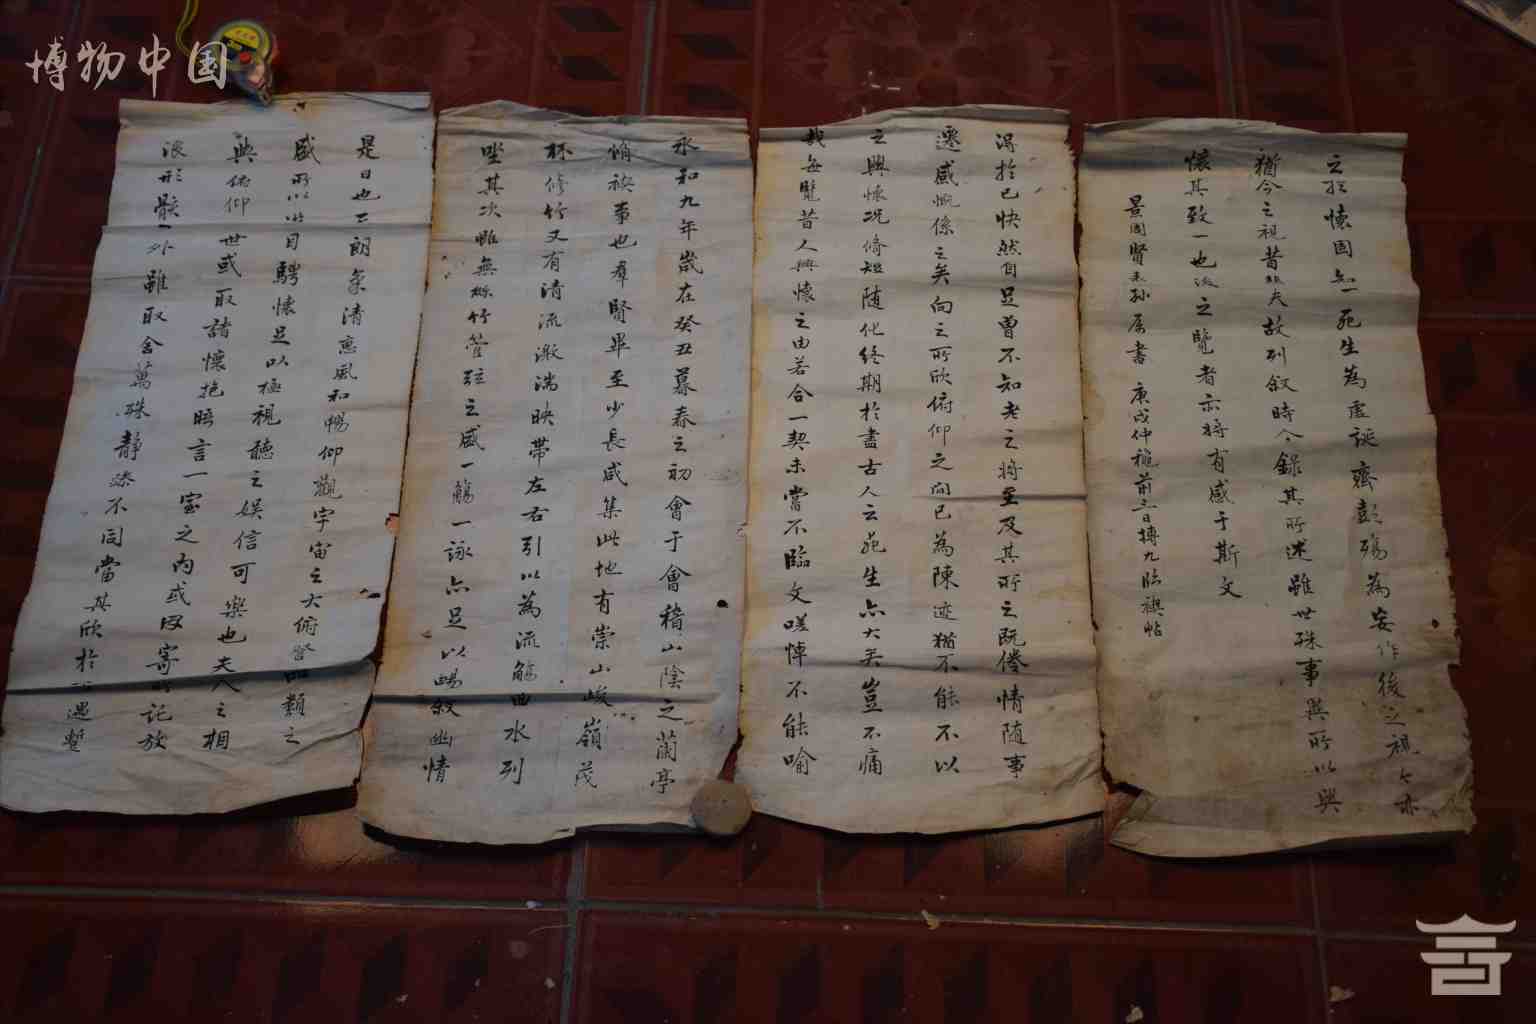 博物中国
永和九年歲在癸丑暮春之初會于會稽山陰之蘭亭
脩禊事也羣賢畢至少長咸集此地有崇山峻嶺茂
林修竹又有清流激湍映帶左右引以為流觴曲水列
坐其次雖無絲竹管弦之盛一觴一詠亦足以暢敘幽情
是日也天朗氣清惠風和暢仰觀宇宙之大俯察品類之
盛所以遊目騁懷足以極視聽之娛信可樂也夫人之相
與俯仰一世或取諸懷抱晤言一室之內或因寄所託放
浪形骸之外雖取舍萬殊靜躁不同當其欣於所遇暫
得於己快然自足曾不知老之將至及其所之既倦情隨事
遷感慨係之矣向之所欣俯仰之間已為陳迹猶不能不以
之興懷況脩短隨化終期於盡古人云死生亦大矣豈不痛
哉每覽昔人興懷之由若合一契未嘗不臨文嗟悼不能喻
之於懷固知一死生為虛誕齊彭殤為妄作後之視今亦
猶今之視昔悲夫故列敘時人錄其所述雖世殊事異所以興
懷其致一也後之覽者亦將有感于斯文
景園賢表孫屬書 庚戌仲穐前三日搏九臨禊帖